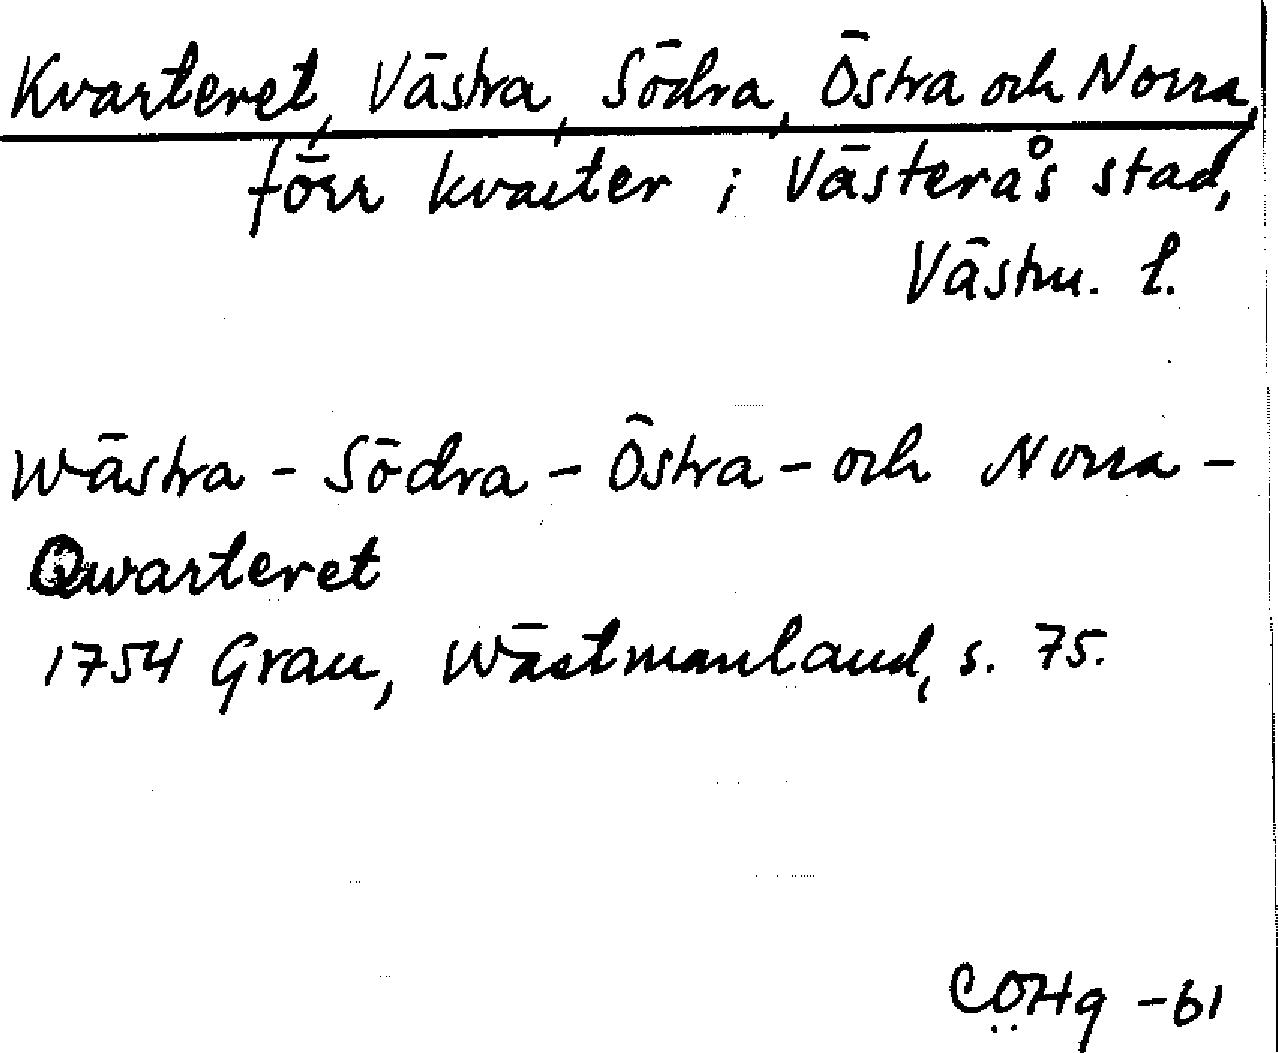 Kvarteret, Västra, Södra, Östra och Norra,
förr kvarter i Västerås stad,
Västm. l.
Wästra - Södra - Östra - och Norra -
Qwarteret
1754 Grau, Wästmanland, s. 75.
CÖHg -61